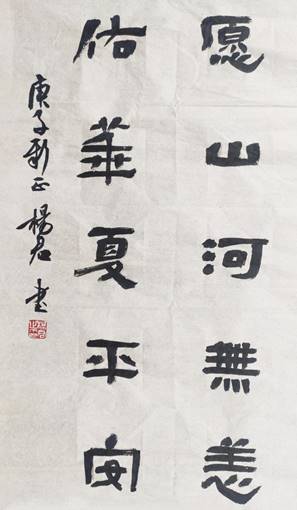 愿山河無恙
佑華夏平安
庚子新正 楊君 书